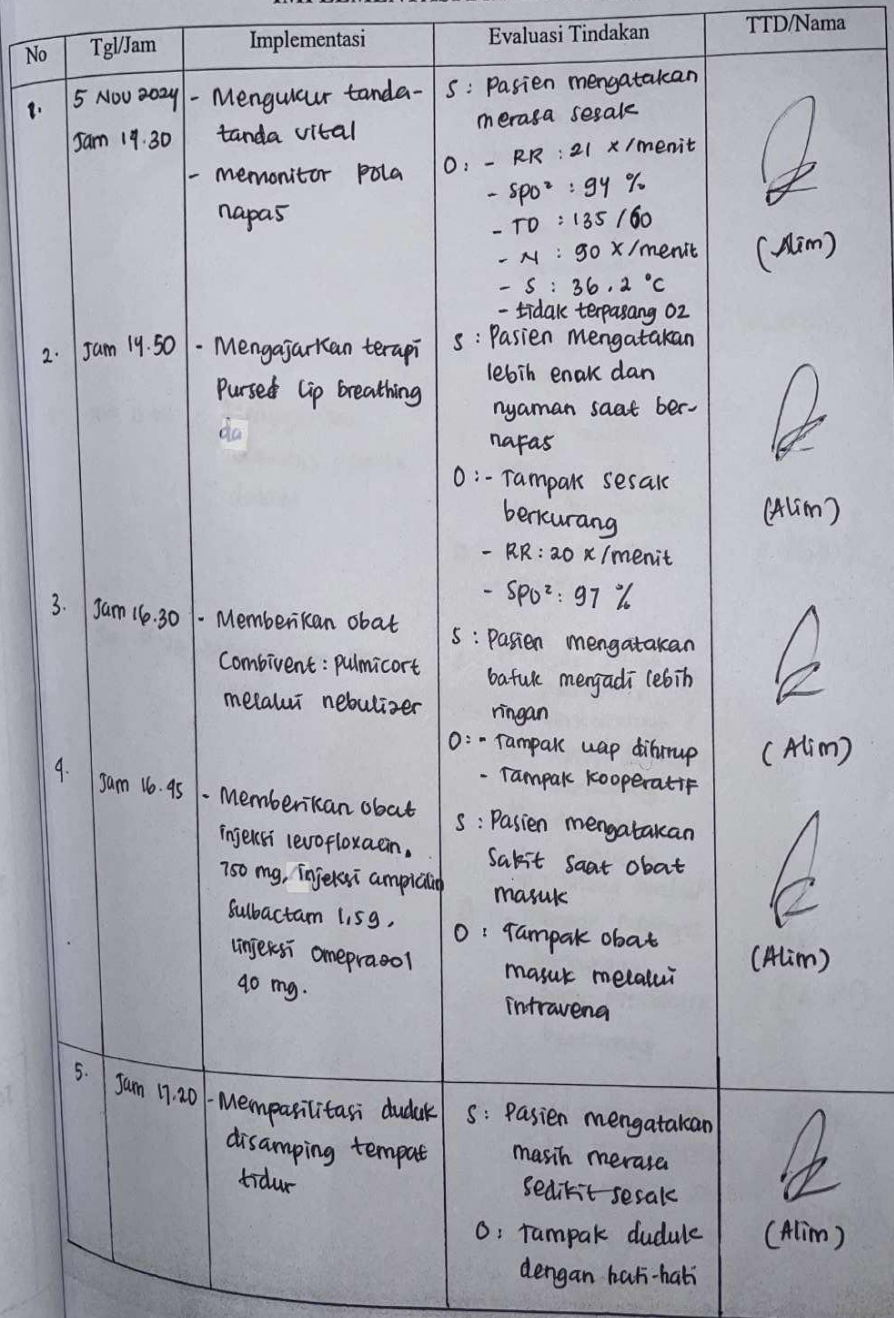 No
Tgl/Jam
Implementasi
Evaluasi Tindakan
TTD/Nama
1.
5 Nov 2024
Jam 14.30
- Mengukur tanda-
tanda vital
- memonitor pola
napas
S : Pasien mengatakan
merasa sesak
O : - RR : 21 x/menit
- SPO² : 94 %
- TD : 135/60
- N : 90 x/menit
- S : 36,2 °C
- tidak terpasang O2
(Alim)
2.
Jam 14.50
- Mengajarkan terapi
Pursed lip breathing
da
S : Pasien Mengatakan
lebih enak dan
nyaman saat ber-
nafas
O : - Tampak sesak
berkurang
- RR : 20 x/menit
- SPO² : 97 %
(Alim)
3.
Jam 16.30
- Memberikan obat
Combivent : pulmicort
melalui nebulizer
S : Pasien mengatakan
batuk menjadi lebih
ringan
O : - Tampak uap dihirup
- Tampak kooperatif
(Alim)
4.
Jam 16.45
- Memberikan obat
injeksi levofloxacin.
750 mg, injeksi ampicilin
Sulbactam 1,5 g,
injeksi omeprazol
40 mg.
S : Pasien mengatakan
Sakit saat obat
masuk
O : Tampak obat
masuk melalui
intravena
(Alim)
5.
Jam 17.20
- Mempasilitasi duduk
disamping tempat
tidur
S : Pasien mengatakan
masih merasa
sedikit sesak
O : Tampak duduk
dengan hati-hati
(Alim)